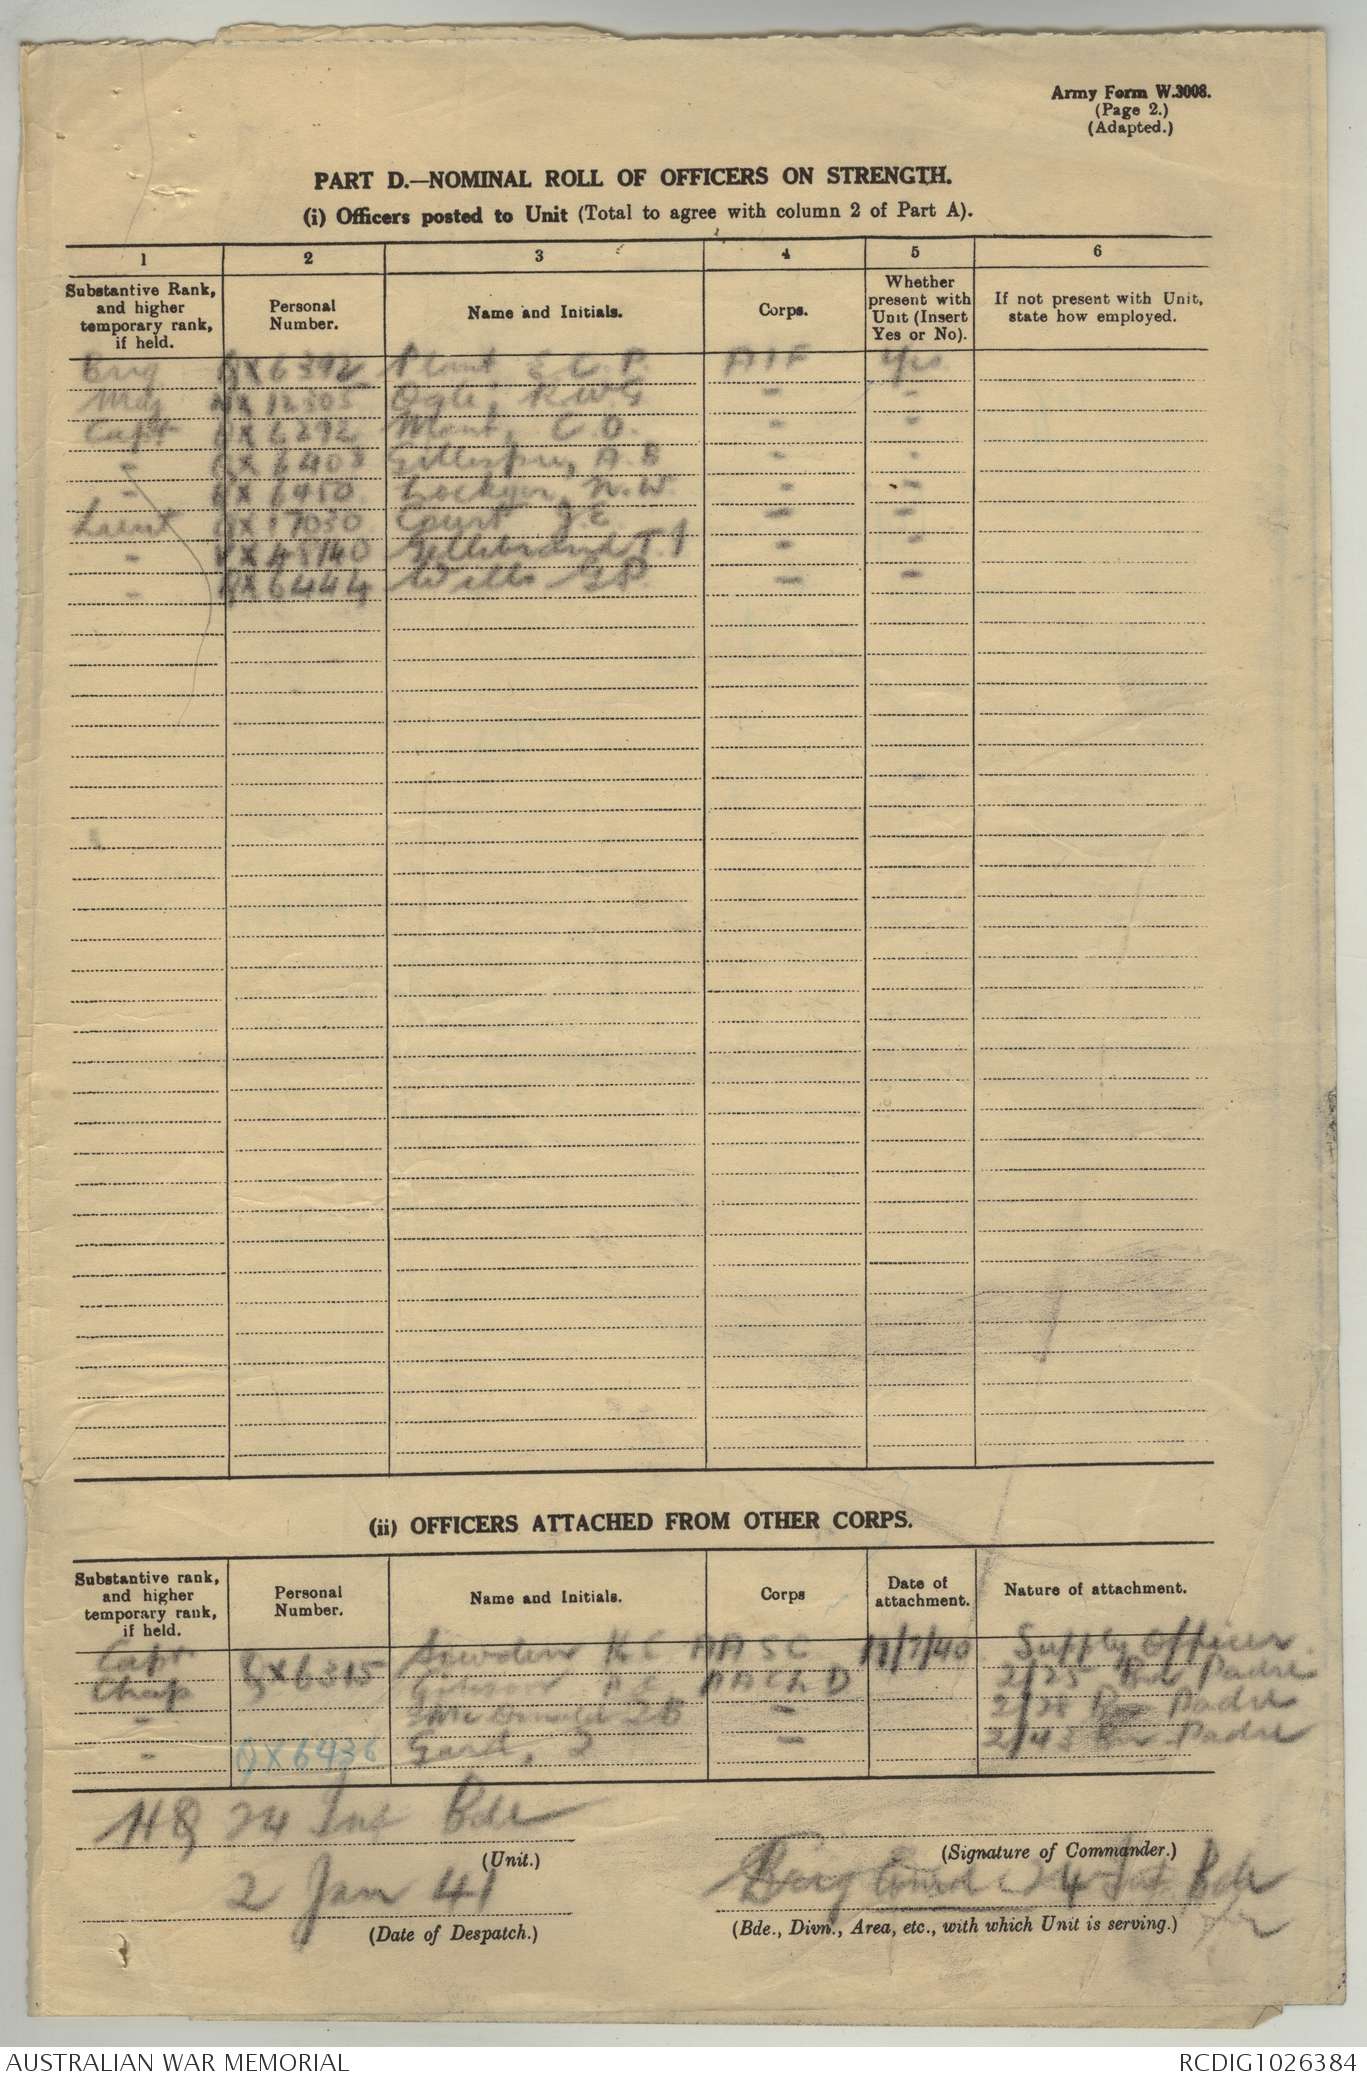 Army Form W.3008.
(Page 2.)
(Adapted.)
PART D.—NOMINAL ROLL OF OFFICERS ON STRENGTH.
(i) Officers posted to Unit (Total to agree with column 2 of Part A).
1 2 3 4 5 6
Substantive Rank, and higher temporary rank, if held. Personal Number. Name and Initials. Corps. Whether present with Unit (Insert Yes or No). If not present with Unit, state how employed.
Brig QX6392 Plant E C. P. AIF Yes
Maj 12305 Ogle, R W G - -
Capt QX6292 Mant, C. O. - -
- QX6403 Gillespie, A. B - -
- QX6450 Lockyer, N. W. - -
Lieut QX17030 Court J C. - -
- VX45140 Gellibrand T. I - -
- QX6444 Wills G P. - -
(ii) OFFICERS ATTACHED FROM OTHER CORPS.
Substantive rank, and higher temporary rank, if held. Personal Number. Name and Initials. Corps Date of attachment. Nature of attachment.
Capt SX6315 H C AASC /7/40 Supply Officer
Chap A C AAChD 2/25 Bn Padre
- McDonald - 2/28 Bn Padre
- QX6436 Gard, - 2/43 Bn Padre
HQ 24 Inf Bde
(Unit.)
(Signature of Commander.)
2 Jan 41
Brig Comd 24 Inf Bde
(Date of Despatch.)
(Bde., Divn., Area, etc., with which Unit is serving.)
AUSTRALIAN WAR MEMORIAL
RCDIG1026384